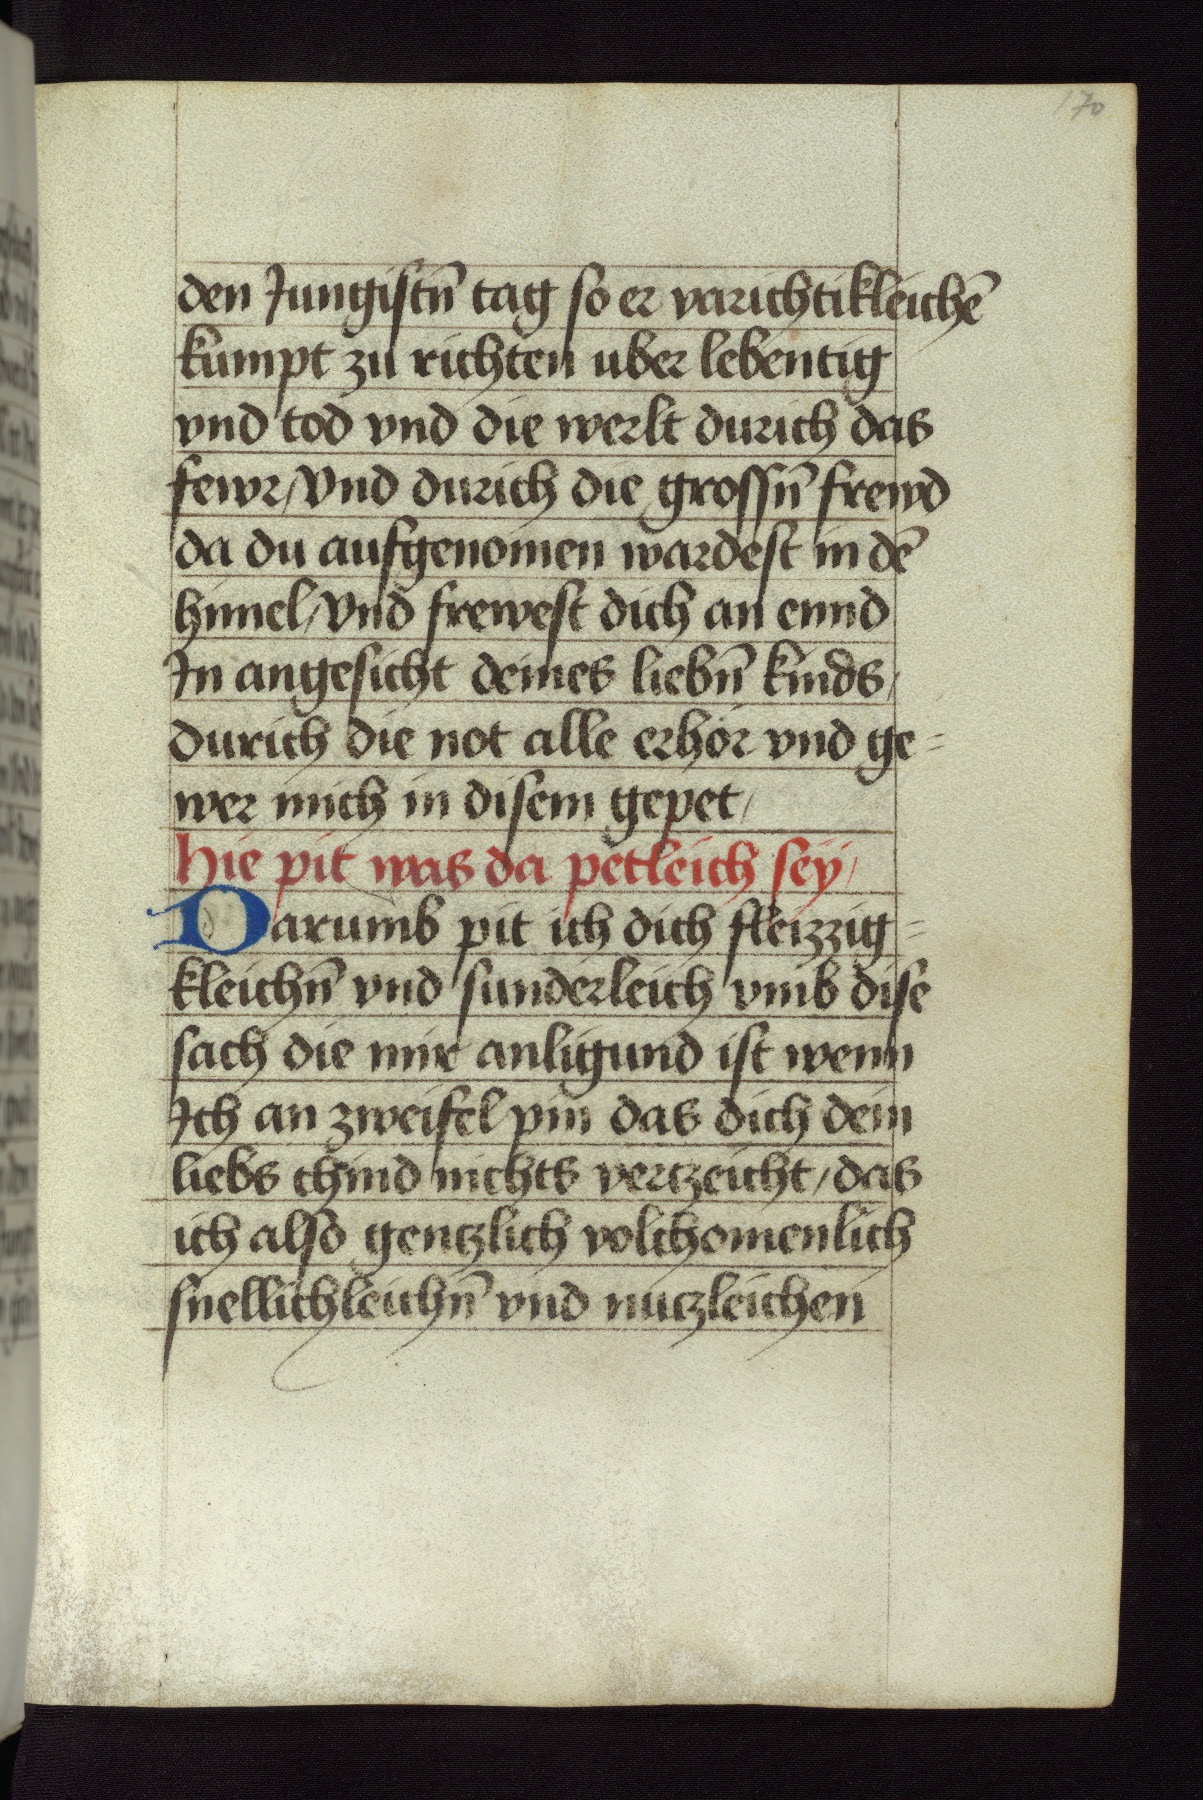 170
den Jungistn̄ tag so er varichtikleichē
kumpt zu richten uber lebentig
vnd tod vnd die werlt durich das
fewr / Vnd durich die grossn̄ frewd
da du aufgenomen wardest in dē
himel / Vnd frewest dich an ennd
In angesicht deines liebn̄ kinds /
durich die not alle erhör vnd ge=
wer mich in disem gepet /
Hie pit was da petleich sey /
Darumb pit ich dich fleizzig=
kleichn̄ vnd sunderleich vmb dise
sach die mir anligund ist wenn
Ich an zweifel pin das dich dein
liebs chind nichts vertzeicht / das
ich also gentzlich volchomenlich
snellichleichn̄ vnd nutzleichen